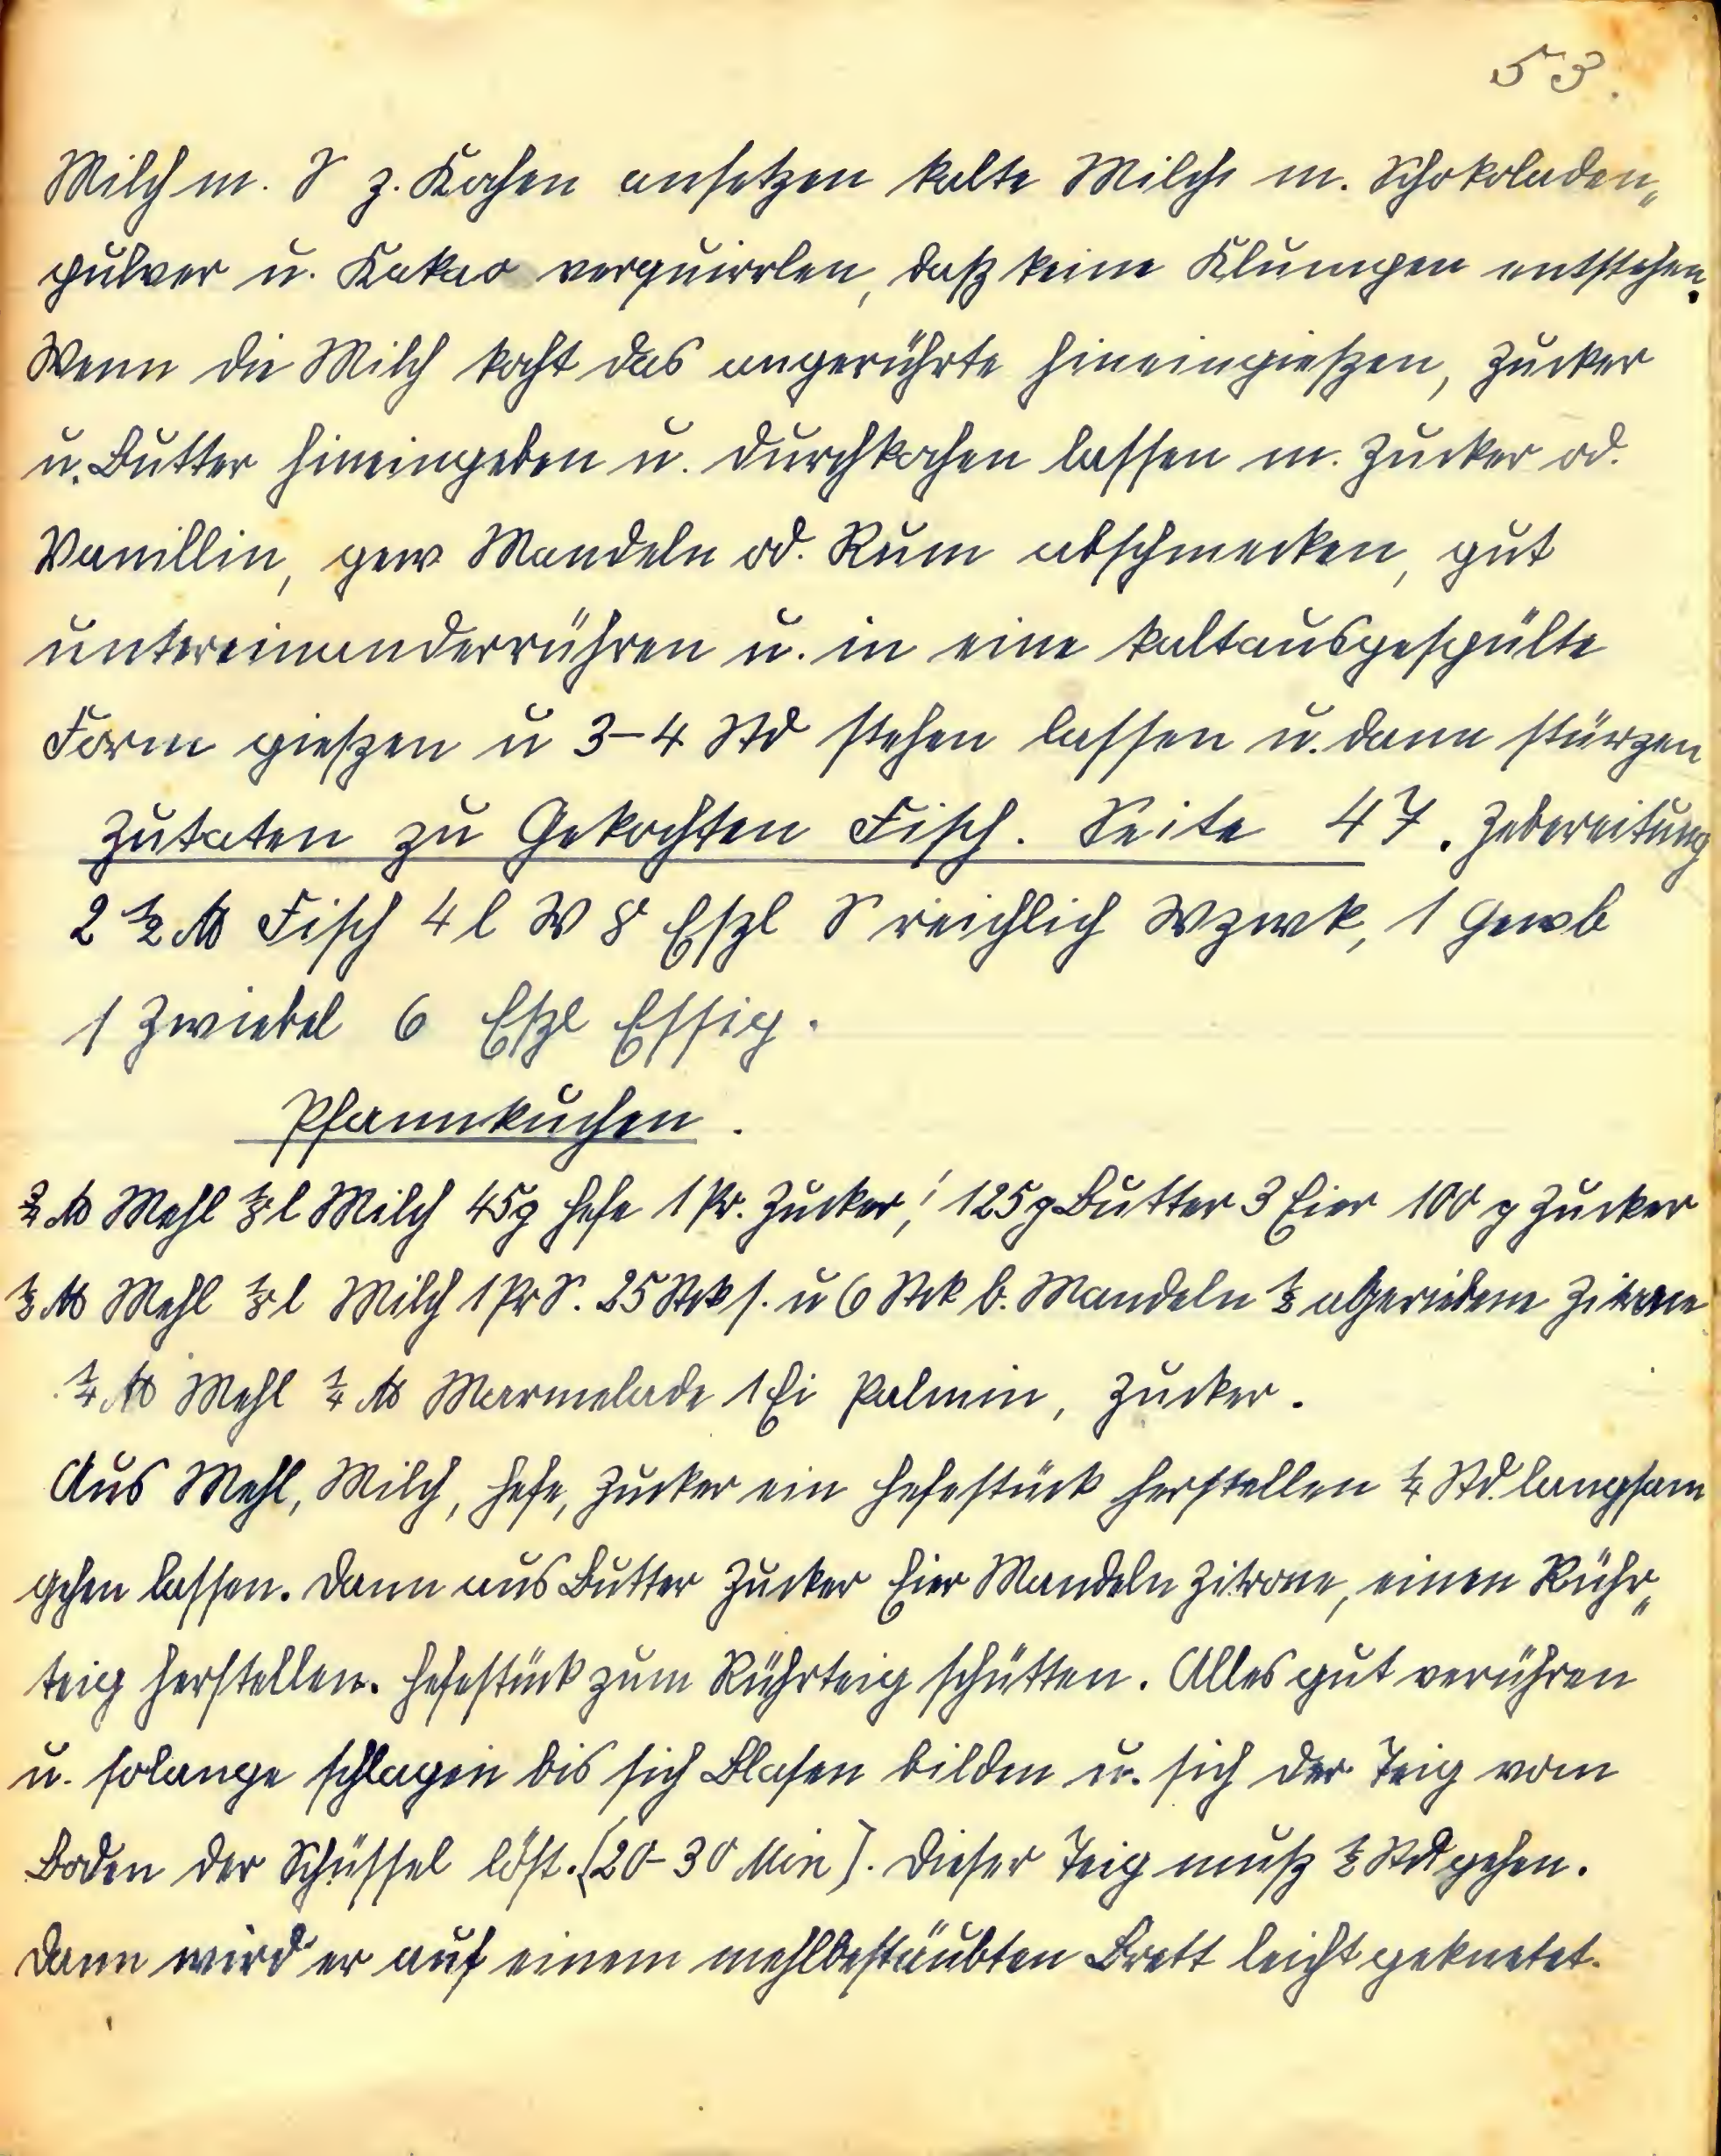 53.
Milch m. S z. Kochen ansetzen kalte Milch m. Schokoladen„
pulver u. Kakao verquirrlen, daß keine Klumpen entstehen.
Wenn die Milch kocht das angerührte hineingießen, Zucker
u. Butter hineingeben u. durchkochen lassen m. Zucker od.
Vanillin, gew Mandeln od. Rum abschmecken, gut
untereinanderrühren u. in eine kaltausgespülte
Form gießen u 3-4 Std stehen lassen u. dann stürzen
Zutaten zu Gekochten Fisch. Seite 47. Zebereitung
2 ½ ℔ Fisch 4 l W 8 Eßl S reichlich Wzwk, 1 Gewb
1 Zwiebel 6 Eßl Essig.
Pfannkuchen.
℔ Mehl ⅛ l Milch 45g Hefe 1 Pr. Zucker, 125 g Butter 3 Eier 100 g Zucker
½ ℔ Mehl ⅛ l Milch 1 Pr S. 25 Stck s. u 6 Stck b. Mandeln ½ abgeriebene Zitrone
¼ ℔ Mehl ¼ ℔ Marmelade 1 Ei Palmin, Zucker.
Aus Mehl, Milch, Hefe, Zucker ein Hefestück herstellen ¼ Std. langsam
gehen lassen. Dann aus Butter Zucker Eier Mandeln Zitrone, einen Rühr„
teig herstellen. Hefestück zum Rührteig schütten. Alles gut verühren
u. solange schlagen bis sich Blasen bilden u. sich der Teig vom
Boden der Schüssel löst. (20-30 Min). Dieser Teig muß ½ Std gehen.
Dann wird er auf einem mehlbestäubten Brett leicht geknetet.